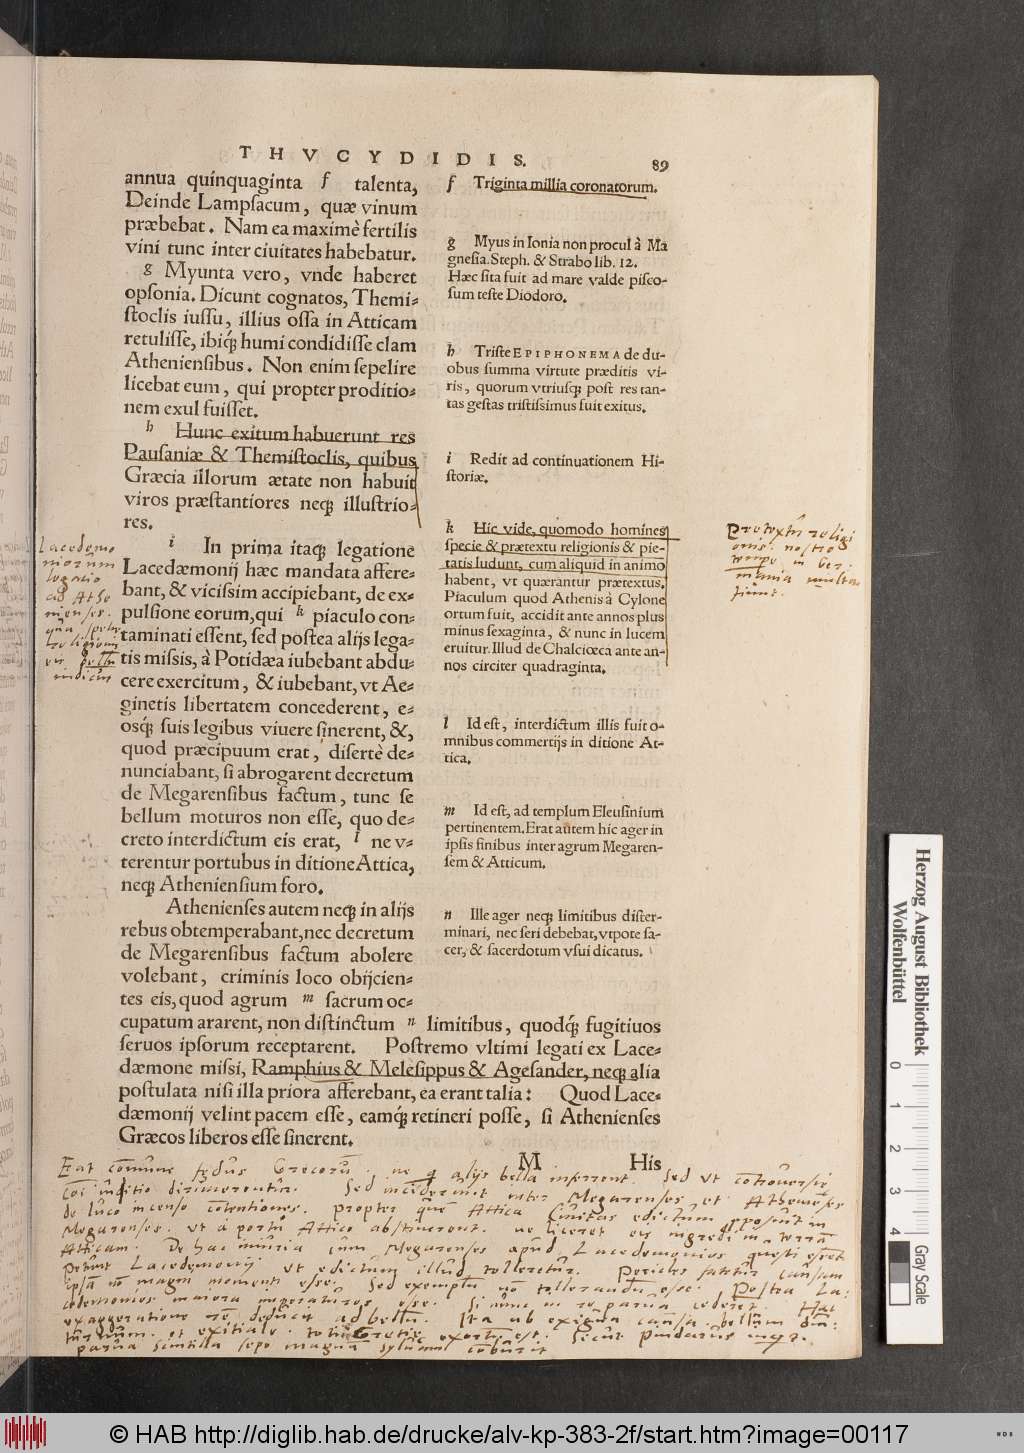 THVCYDIDIS. 89
annua quinquaginta f talenta,
Deinde Lampsacum, quæ vinum
præbebat. Nam ea maximè fertilis
vini tunc inter ciuitates habebatur.
g Myunta vero, vnde haberet
opsonia. Dicunt cognatos, Themi=
stoclis iussu, illius ossa in Atticam
retulisse, ibiq́; humi condidisse clam
Atheniensibus. Non enim sepelire
licebat eum, qui propter proditio=
nem exul fuisset.
h Hunc exitum habuerunt res
Pausaniæ & Themistoclis, quibus
Græcia illorum ætate non habuit
viros præstantiores neq; illustrio=
res.
i In prima itaq; legatione
Lacedæmonij hæc mandata affere=
bant, & vicissim accipiebant, de ex=
pulsione eorum, qui k piaculo con=
taminati essent, sed postea alijs lega=
tis missis, à Potidæa iubebant abdu=
cere exercitum, & iubebant, vt Ae=
ginetis libertatem concederent, e=
osq́; suis legibus viuere sinerent, &,
quod præcipuum erat, disertè de=
nunciabant, si abrogarent decretum
de Megarensibus factum, tunc se
bellum moturos non esse, quo de=
creto interdictum eis erat, l ne v=
terentur portubus in ditione Attica,
neq; Atheniensium foro.
Athenienses autem neq; in alijs
rebus obtemperabant, nec decretum
de Megarensibus factum abolere
volebant, criminis loco obijcien=
tes eis, quod agrum m sacrum oc=
cupatum ararent, non distinctum n limitibus, quodq́; fugitiuos
seruos ipsorum receptarent. Postremo vltimi legati ex Lace=
dæmone missi, Ramphius & Melesippus & Agesander, neq; alia
postulata nisi illa priora afferebant, ea erant talia: Quod Lace=
dæmonij velint pacem esse, eamq́; retineri posse, si Athenienses
Græcos liberos esse sinerent.
M His
f Triginta millia coronatorum.
g Myus in Ionia non procul à Ma
gnesia. Steph. & Strabo lib. 12.
Hæc sita fuit ad mare valde pisco-
sum teste Diodoro.
h Triste EPIPHONEMA de du-
obus summa virtute præditis vi-
ris, quorum vtriusq; post res tan-
tas gestas tristissimus fuit exitus.
i Redit ad continuationem Hi-
storiæ.
k Hic vide, quomodo homines
specie & prætextu religionis & pie-
tatis ludunt, cum aliquid in animo
habent, vt quærantur prætextus.
Piaculum quod Athenis à Cylone
ortum fuit, accidit ante annos plus
minus sexaginta, & nunc in lucem
eruitur. Illud de Chalciœca ante an-
nos circiter quadraginta.
l Id est, interdictum illis fuit o-
mnibus commertijs in ditione At-
tica.
m Id est, ad templum Eleusinium
pertinentem. Erat autem hic ager in
ipsis finibus inter agrum Megaren-
sem & Atticum.
n Ille ager neq; limitibus dister-
minari, nec seri debebat, vtpote sa-
cer, & sacerdotum vsui dicatus.
Lacedemo
niorum
legatio
ad Athe
nienses.
religionis
Pretextu religi
onis nostro
tempore in Ger
mania multa
fiunt.
Erat commune fedus Grecorum. ne alijs bella inferrent. Sed ut controuersie
dirimerentur. Sed inciderunt inter Megarenses et Athenienses
de luco incenso contentiones. Propter que Attica Ciuitas edictum proposuit in
Megarenses. ut a portu Attico abstinerent. ne liceret eis ingredi in terram
Atticam. De hac iniuria cum Megarenses apud Lacedemonios questi essent
petunt Lacedemonij ut edictum illud tolleretur. Pericles fatetur causam
ipsam non magni momenti esse. Sed exemplum non tollerandum esse. Postea La-
cedemonios maiora imperaturos esse. si nunc in re parua cederet. Hac
exaggeratione rem deducit ad bellum. Ita ab exigua causa bellum
et exitiale toti Gretie exortum est. Sicut Pindarus inquit.
parua scintilla sepe magnam syluam comburit
Herzog August Bibliothek
Wolfenbüttel
0 1 2 3 4
Gray Scale
© HAB http://diglib.hab.de/drucke/alv-kp-383-2f/start.htm?image=00117